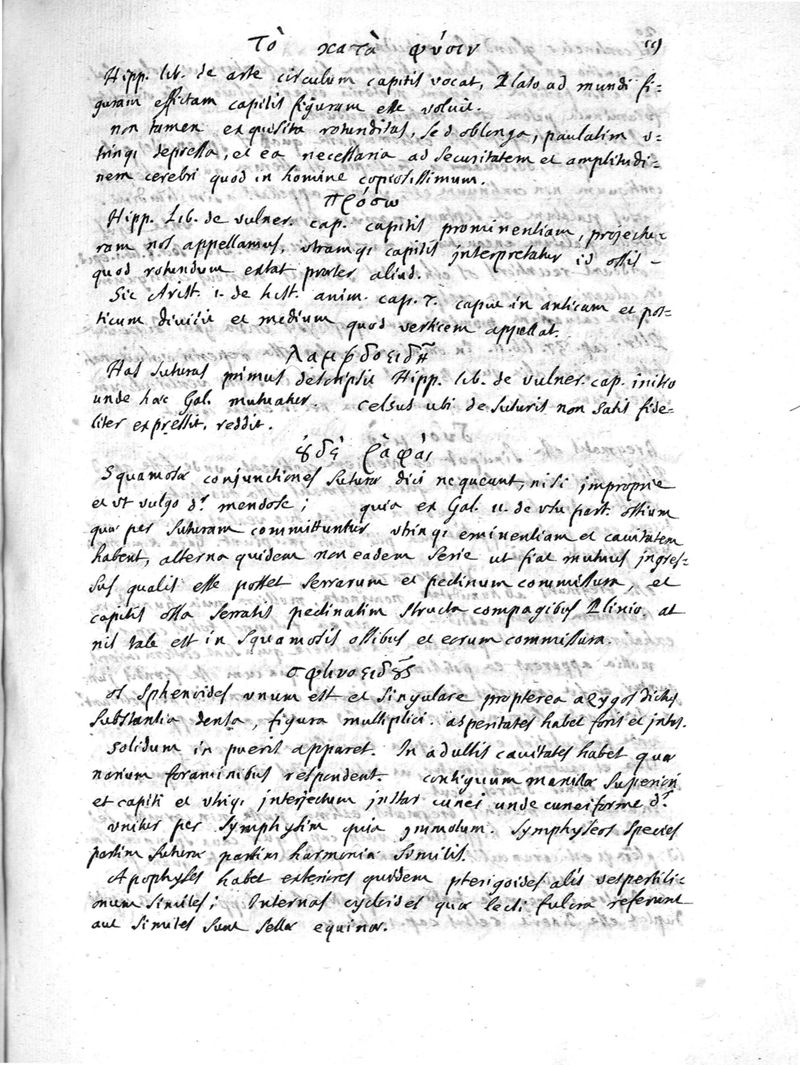 Τὸ κατὰ φύσιν 19
Hipp. lib. de arte circulum capitis vocat, Plato ad mundi fi-
guram effictam capitis figuram esse voluit.
non tamen exquisita rotunditas, sed oblonga, paulatim u-
trinq; depressa, et ea necessaria ad securitatem et amplitudi-
nem cerebri quod in homine copiosissimum.
πρόσω
Hipp. Lib. de vulner. cap. capitis prominentiam, projectu-
ram nos appellamus, utramq; capitis interpretatur id ossis
quod rotundum extat praeter aliud.
Sic Arist. 1. de hist. anim. cap. 7. caput in anticum et pos-
ticum dividit et medium quod verticem appellat.
λαμβδοειδῆ
Has suturas primus descripsit Hipp. lib. de vulner. cap. initio
unde haec Gal. mutuatur. Celsus ubi de suturis non satis fide-
liter expressit, reddit.
οὐδὲ ῥαφάς
Squamosae conjunctiones suturae dici nequeunt, nisi improprie
et ut vulgo dr. mendose; quia ex Gal. 11. de usu part. ossium
quae per suturam committuntur utrinq; eminentiam et cavitatem
habent, alterna quidem non eadem serie ut fiat mutuus ingres-
sus qualis esse posset serrarum et pectinum commissura, et
capitis ossa serratis pectinatim structa compagibus Plinio, at
nil tale est in squamosis ossibus et eorum commissura.
σφηνοειδοῦς
os sphenoides unum est et singulare propterea azygos dictus
substantia densa, figura multiplici. asperitates habet foris et intus.
solidum in pueris apparet. In adultis cavitates habet quae
narium foraminibus respondent. contiguum maxillae superiori
et capiti et utriq; interjectum instar cunei unde cuneiforme dr.
unitur per symphysim quia immotum. symphyseos species
partim suturae partim harmoniae similis.
Apophyses habet exteriores quidem pterigoides alis vespertili-
onum similes; Internas cycloides quae lecti fulcra referunt
aut similes sunt sellae equinae.